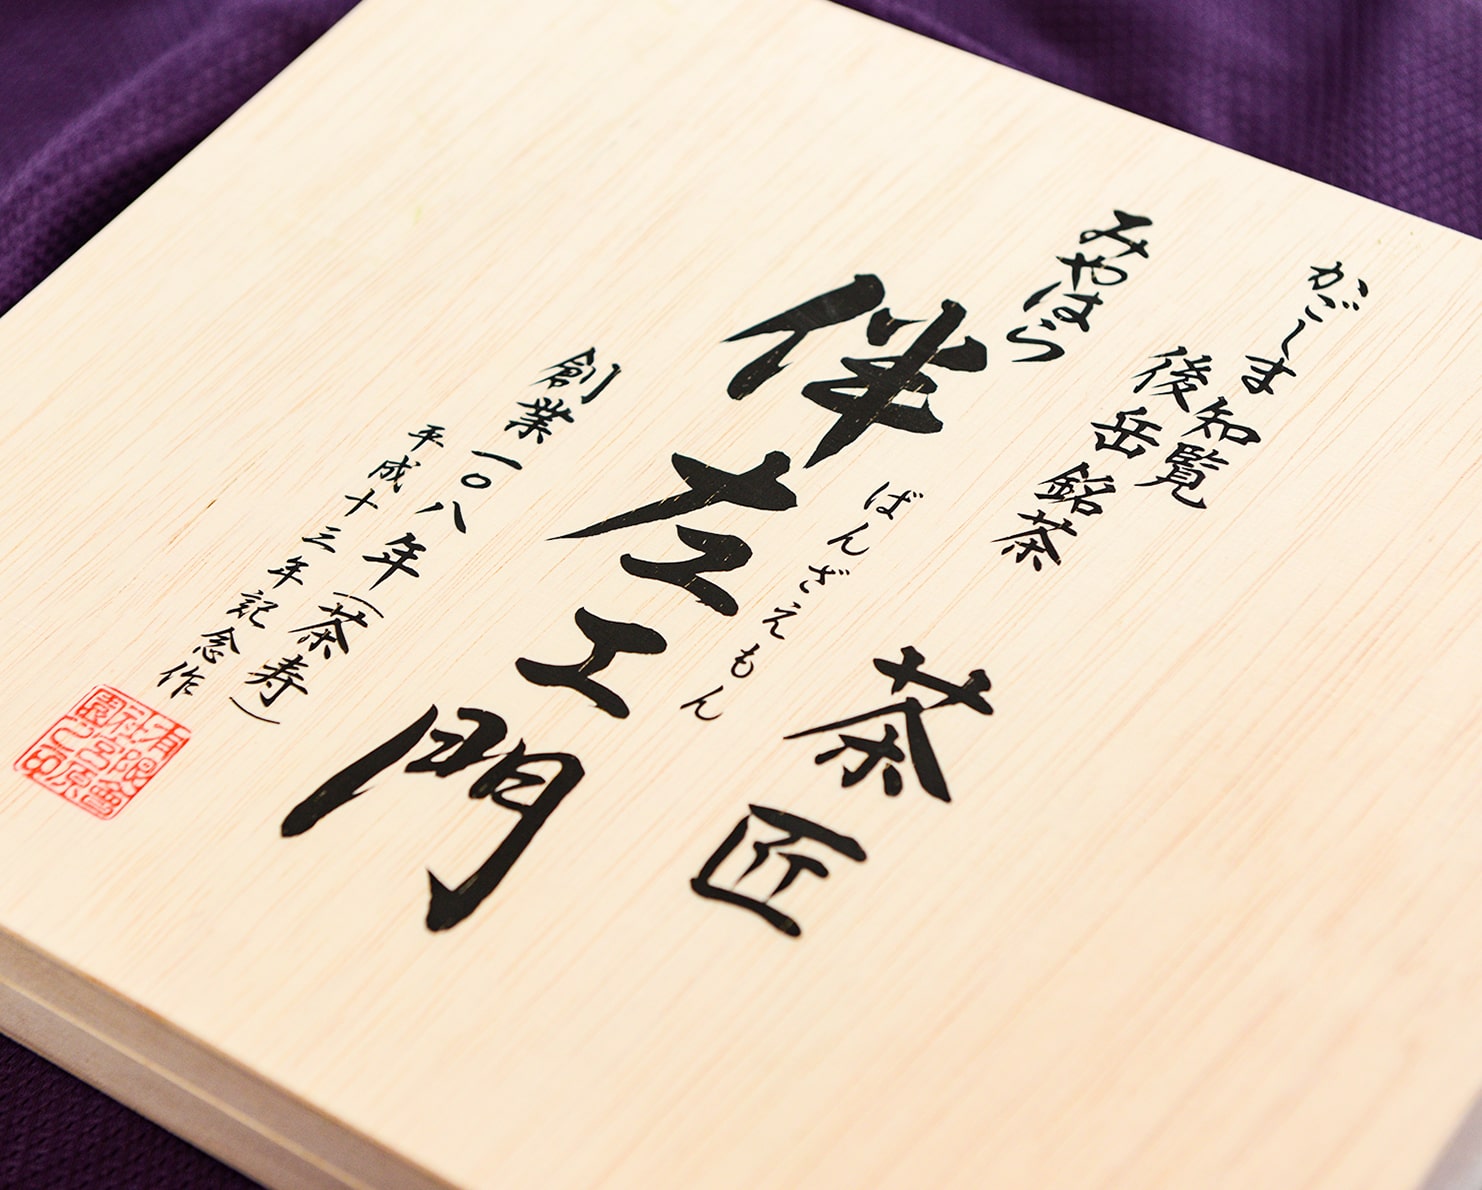 かごしま知覧
後岳銘茶
みやはら
茶匠
ばんざえもん
伴左エ門
創業一〇八年(茶寿)
平成十三年記念作
有限會
社宮原
園之印